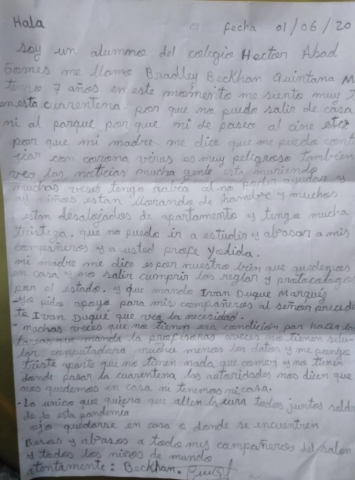 Hola fecha 01/06/20
soy un alumno del colegio Hector Abad
Gomes me llamo Bradley Beckhan Quintana M
tengo 7 años en este momento me siento muy t
en esta cuarentena por que no puedo salir de casa
ni al parque por que ni de paseo al cine etc
por que mi madre me dice que me puedo cont
giar con corona virus es muy peligroso tambien
veo las noticias mucha gente esta muriendo
muchas veces tengo rabia al no poder ayudar y
ay niños estan llorando de hambre y muchos
estan desalojados de apartamento y tengo mucha
tristeza, que no puedo ir a estudiar y abrasar a mis
compañeros y a usted profe Yadida.
mi madre me dice es por nuestro bien que quedemos
en casa y no salir cumplir las reglas y protocolos
por el estado. y que mando Ivan Duque Marques
- yo pido apoyo para mis compañeros al señor precide
te Ivan Duque que vea la necesidad.
- muchas veces que no tienen esa condicion par hacer las
tareas que manda la profesoras aveces no tienen selu-
lar conputadora mucho menos los datos y me pongo
triste aparte que no tienen nada que comer y no tienen
donde pasar la cuarentena las autoridades nos dicen que
nos quedemos en casa ni tenemos ni casa.
- Lo unico que quiero que allen la cura todos juntos saldr
de la esta pandemia
ojo quedarse en casa o donde se encuentren
Besos y abrasos a todo mis compañeros del salon
y todos los niños de mundo
atentamente: Beckhan.